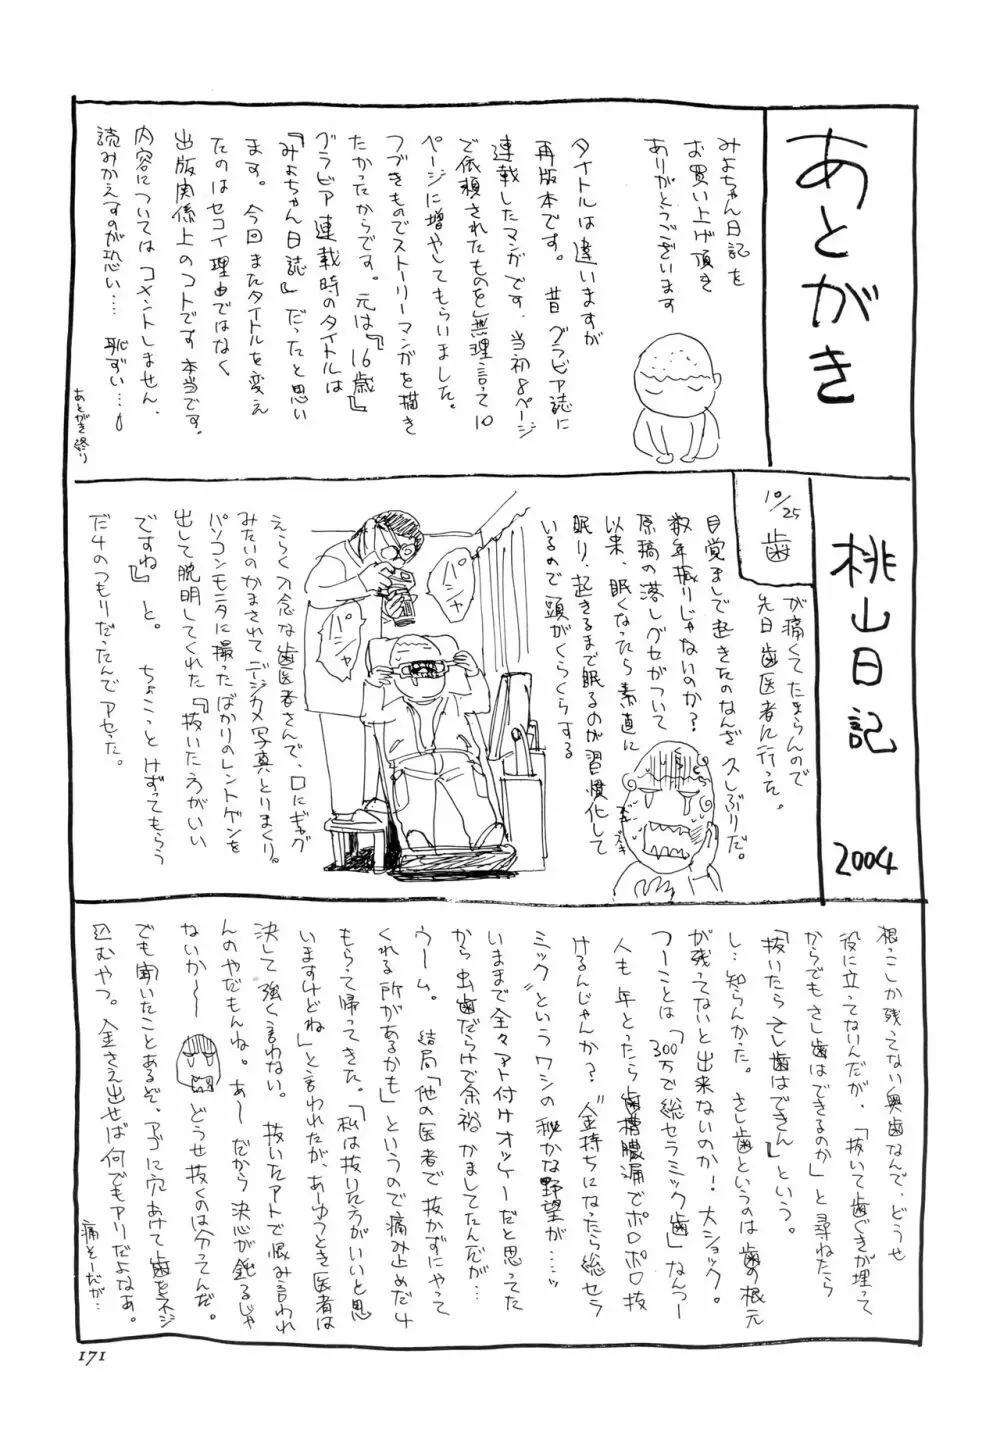 あとがき
みよちゃん日記を
お買い上げ頂き
ありがとうございます
タイトルは違いますが
再版本です。昔グラビア誌に
連載したマンガです、当初8ページ
で依頼されたものを無理言って10
ページに増やしてもらいました。
つづきものでストーリーマンガを描き
たかったからです。元は『16歳』
グラビア連載時のタイトルは
『みよちゃん日誌』だったと思い
ます。今回またタイトルを変え
たのはセコイ理由ではなく
出版関係上のコトです本当です。
内容についてはコメントしません、
読みかえすのが恐い…恥ずい…
あとがき終り
桃山日記
2004
10/25
歯
が痛くてたまらんので
先日歯医者に行った。
目覚ましで起きたのなんざ久しぶりだ。
数年振りじゃないのか?
原稿の落しグセがついて
以来、眠くなったら素直に
眠り、起きるまで眠るのが習慣化して
いるので頭がくらくらする
ズキ
ズキ
パシャ
パシャ
えらく入念な歯医者さんで、口にギャグ
みたいのかまされてデジカメ写真とりまくり。
パソコンモニタに撮ったばかりのレントゲンを
出して説明してくれた『抜いた方がいい
ですね』と。ちょこっとけずってもらう
だけのつもりだったんでアセった。
根っこしか残ってない奥歯なんで、どうせ
役に立ってないんだが、「抜いて歯ぐきが埋って
からでもさし歯はできるのか」と尋ねたら
「抜いたらさし歯はできん」という。
し…知らんかった。さし歯というのは歯の根元
が残ってないと出来ないのか!大ショック。
つーことは「300万で総セラミック歯」なんつー
人も年とったら歯槽膿漏でポロポロ抜
けるんじゃんか?“金持ちになったら総セラ
ミック”というワシの秘かな野望が…ッ
いままで全々アト付けオッケーだと思ってた
から虫歯だらけで余裕かましてたんだが…
ウーム。結局「他の医者で抜かずにやって
くれる所があるかも」というので痛み止めだけ
もらって帰ってきた。「私は抜いた方がいいと思
いますけどね」と言われたが、あーゆうとき医者は
決して強く言わない。抜いたアトで恨み言われ
んのやだもんね。あ〜だから決心が鈍るじゃ
ないか〜〜どうせ抜くのは分ってんだ。
でも聞いたことあるぞ、アゴに穴あけて歯をネジ
込むやつ。金さえ出せば何でもアリだよなあ。
痛そーだが…
171